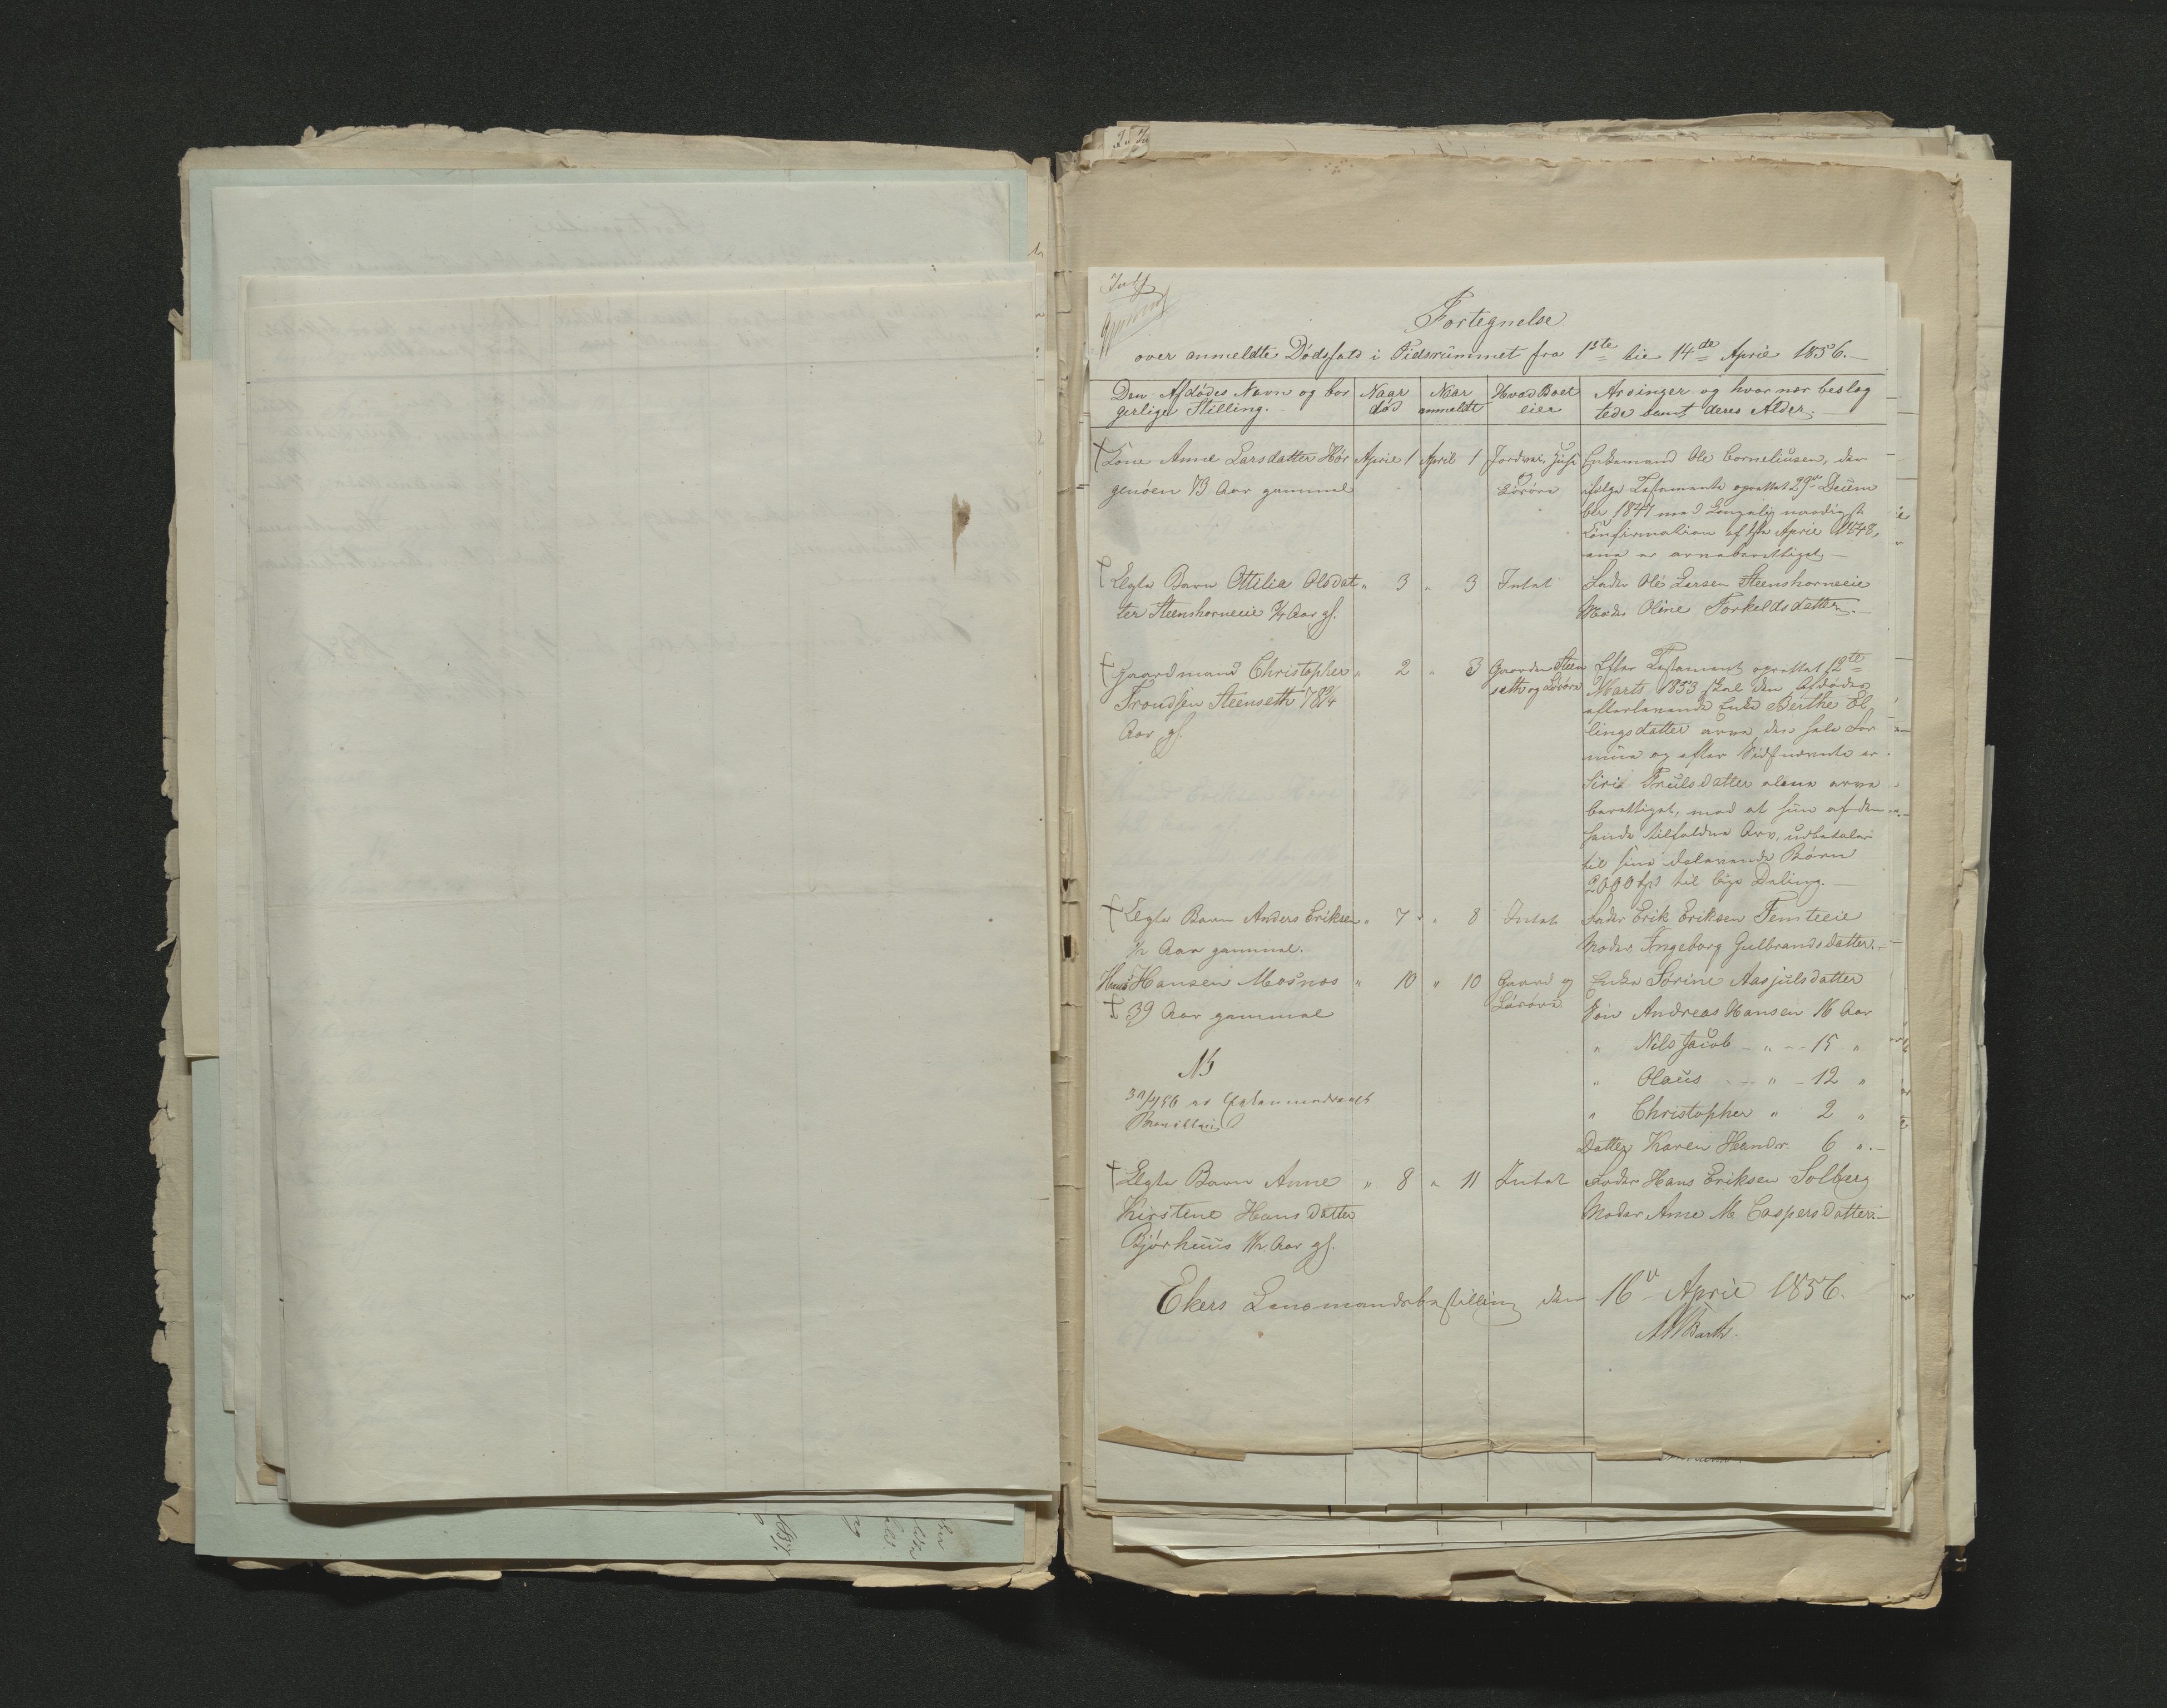 Fortegnelse
over anmeldte Dødsfald i Tidsrummet fra 1ste til 14de April 1856.
Den Afdødes Navn og bor
gerlige Stilling.
Naar
død
Naar
anmeldt
Hvad Boet
eier
Arvinger og hvor nær beslæg
tede samt deres Alder.
Kone Anne Larsdatter Hør
genøen 73 Aar gammel
April 1
April 1
Jordvei,
Løsøre
Enkemand Ole Corneliusen, der
ifølge Testamente oprettet 29de Decem
ber 1847 med Kongelig naadigst
Confirmation af April 1848,
ene er arveberettiget
Ægte Barn Ottilia Olsdat
ter Steenshorneeie 3/4 Aar gl.
" 3
" 3
Intet
Fader Ole Larsen Steenshorneeie
Moder Oline Torkeldsdatter.
Gaardmand Christopher
Trondsen Steenseth 78 1/4
Aar gl.
" 2
" 3
Gaarden Steen
seth og Løsøre
Efter Testament oprettet 12te
Marts 1853 skal den Afdødes
efterlevende Enke Berthe El
lingsdatter arve den hele For
mue og efter Sidstnævnte er
Siri Truls datter alene arve
berettiget, med at hun af den
hende tilfaldne Arv, udbetaler
til sine Børn
2000 Spd til lige Deling.
Ægte Barn Anders Eriksen
1/2 Aar gammel.
" 7
" 8
Intet
Fader Erik Eriksen Temteeie
Moder Ingeborg Gulbrandsdatter.
Hans Hansen Mosnæs
39 Aar gammel
" 10
" 10
Gaard og
Løsøre
Enke Sørine Aasjulsdatter
Søn Andreas Hansen 16 Aar
" Nils Jacob " 15 "
" Olaus " 12 "
" Christopher " 2 "
Datter Karen Hansdr. 6 ".
NB
Ægte Barn Anne
Kirstine Hans datter
Bjørhuus 1 1/2 Aar gl.
" 8
" 11
Intet
Fader Hans Eriksen Solberg
Moder Anne M. Caspersdatter.
Ekers Lensmandsbestilling den 16de April 1856.
Barth.